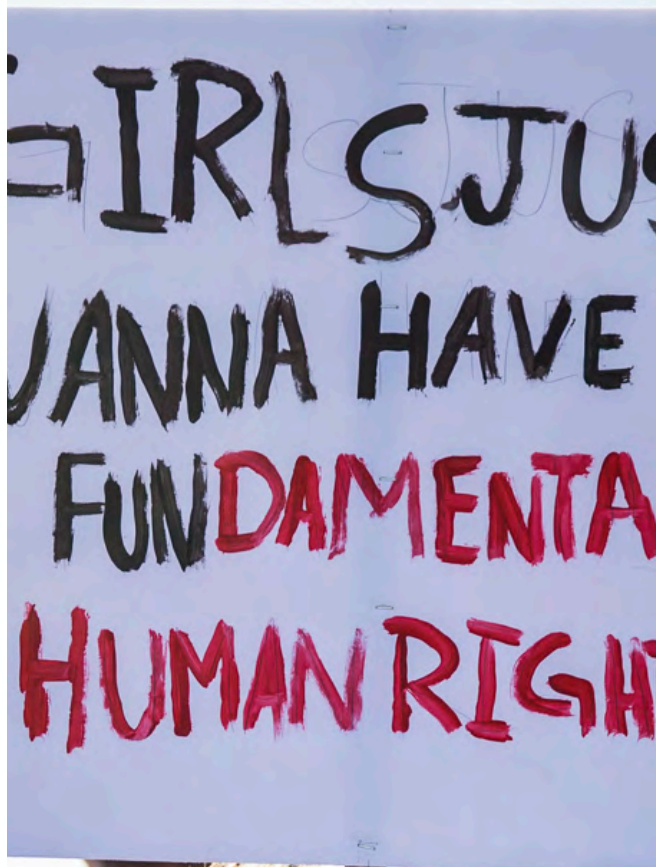 GIRLS JUS
WANNA HAVE
FUNDAMENTA
HUMAN RIGHT